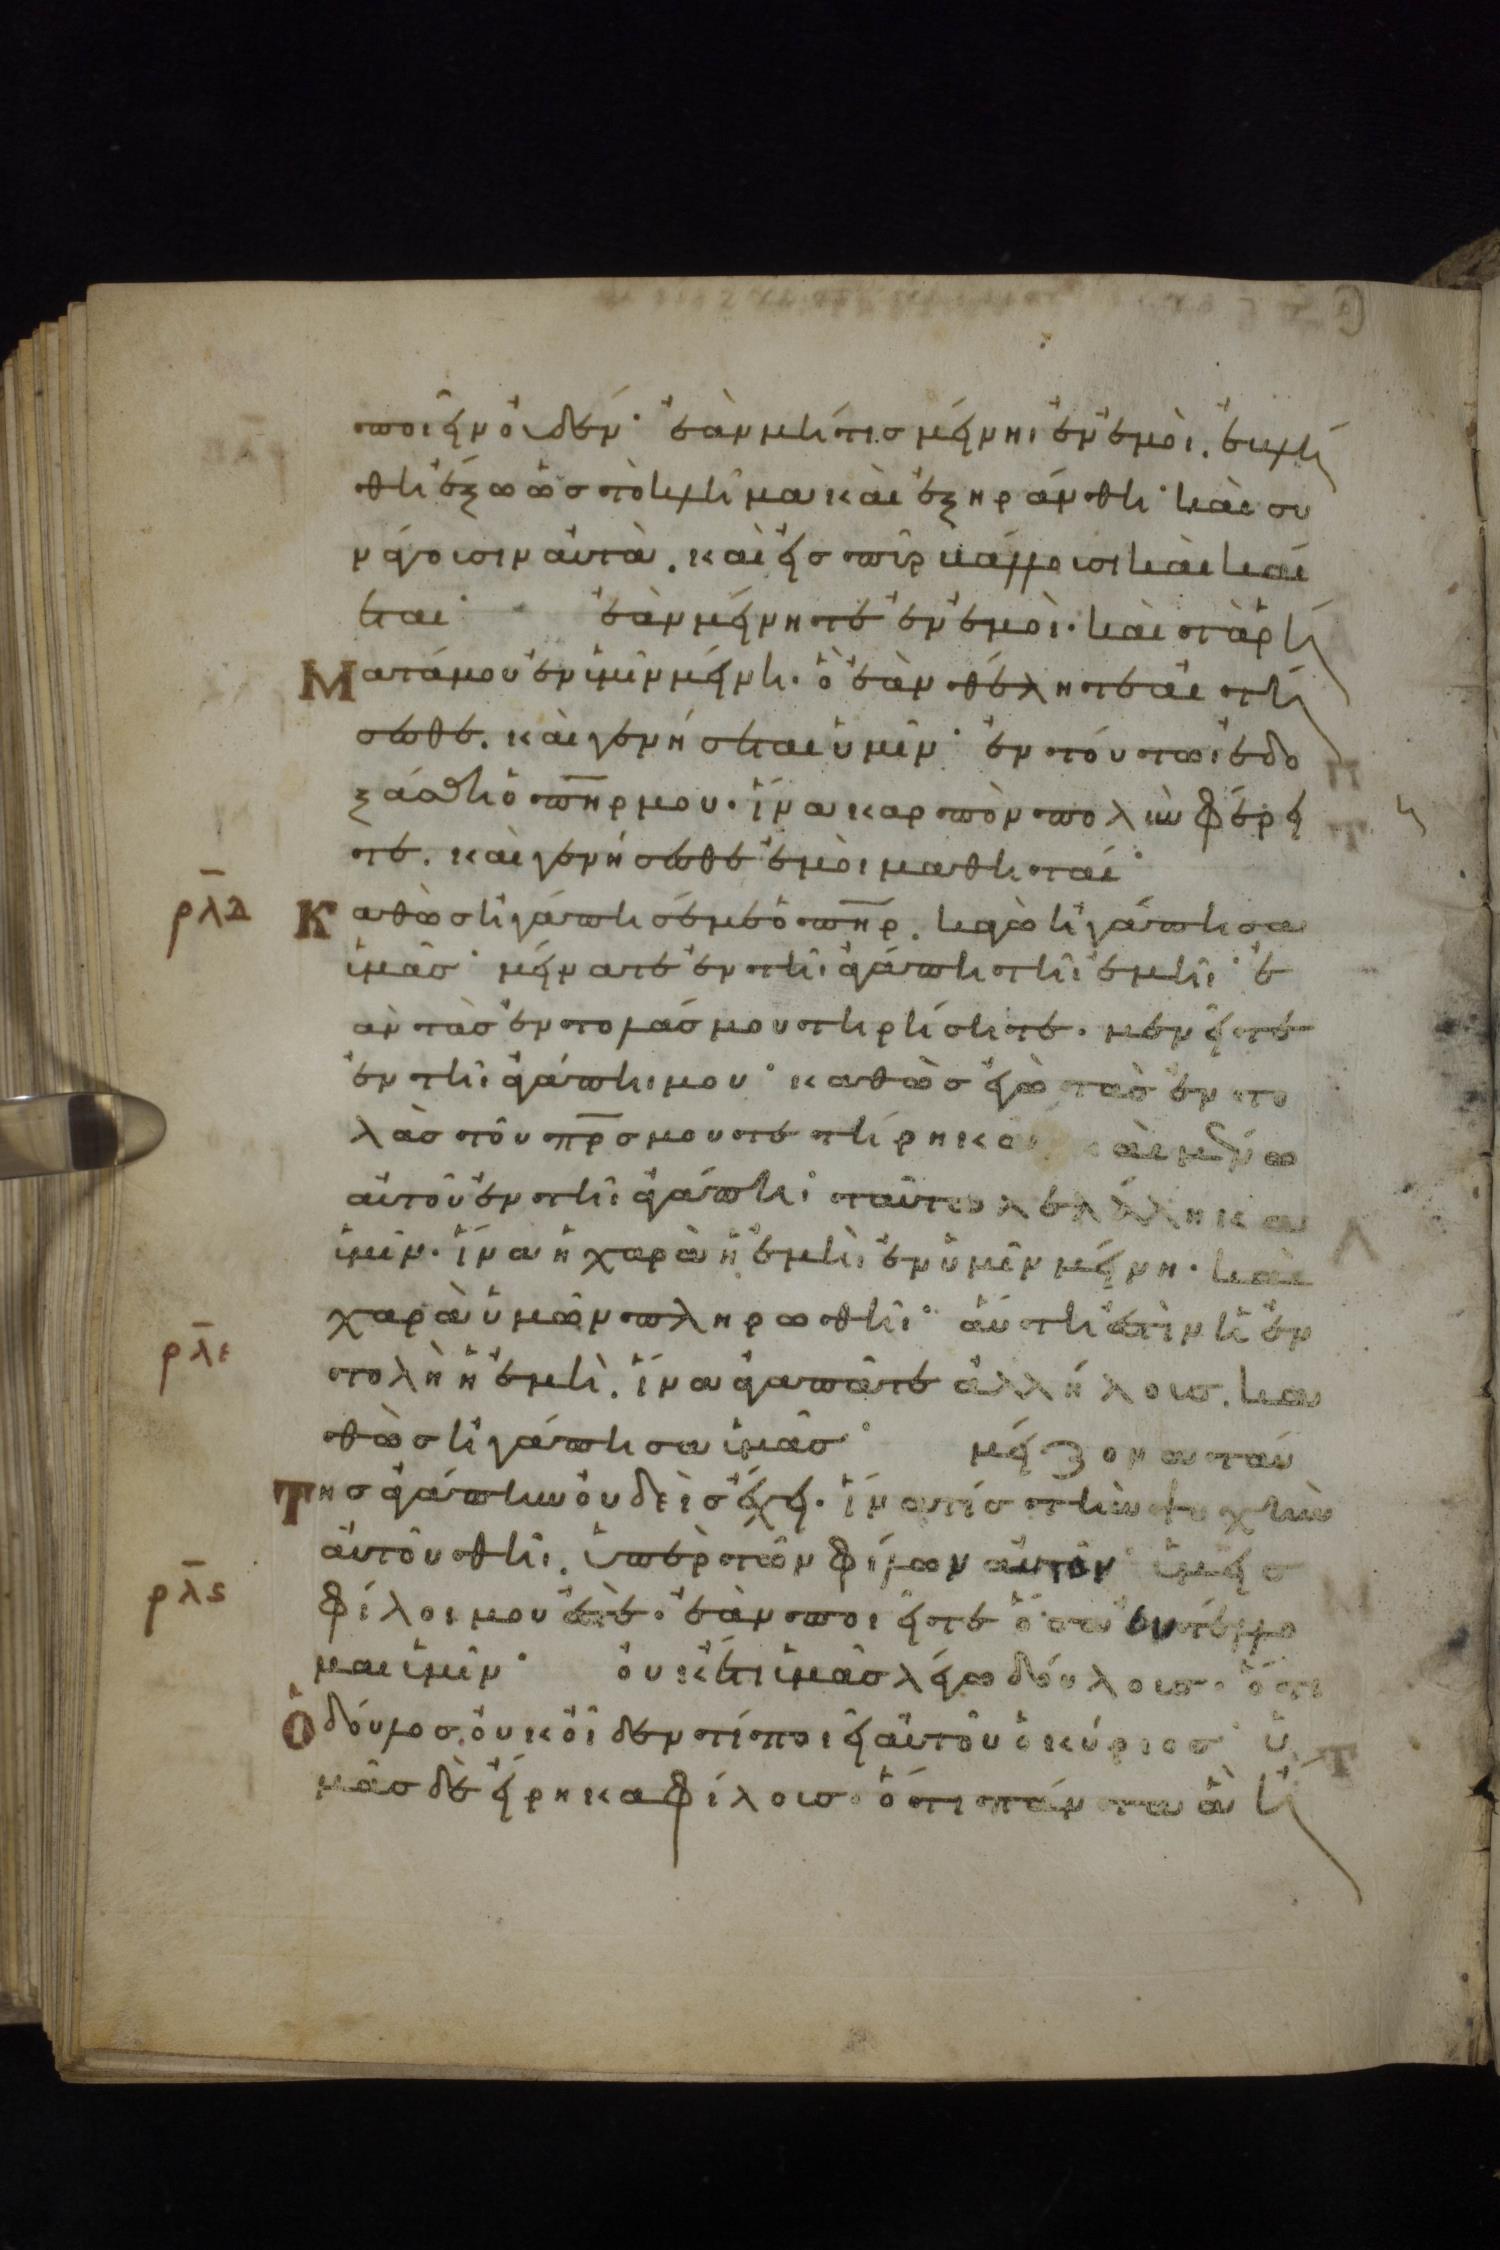 ποιεῖν οὐδέν· ἐὰν μή τις μείνηι ἐν ἐμοὶ. ἐβλή
θη ἔξω ὡς τὸ κλῆμα καὶ ἐξηράνθη· καὶ συ
νάγουσιν αὐτὰ. καὶ εἰς πῦρ βάλλουσι καὶ καί
εται· ἐὰν μείνητε ἐν ἐμοὶ· καὶ τὰ ῥή
ματά μου ἐν ὑμῖν μείνη. ὃ ἐὰν θέλητε αἰτή
σασθε. καὶ γενήσεται ὑμῖν· ἐν τούτωι ἐδο
ξάσθη ὁ πηρ μου. ἵνα καρπὸν πολὺν φέρη
τε. καὶ γενήσεσθε ἐμοὶ μαθηταί·
ρλδ Καθὼς ἠγάπησέ με ὁ πηρ. καγὼ ἠγάπησα
ὑμᾶς· μείνατε ἐν τῆι ἀγάπη τῆι ἐμῆι· ἐ
ὰν τὰς ἐντολάς μου τηρήσητε. μενεῖτε
ἐν τῆι ἀγάπηι μου· καθὼς ἐγὼ τὰς ἐντο
λὰς τοῦ πρς μου τετήρηκα καὶ μένω
αὐτοῦ ἐν τῆι ἀγάπη· ταῦτα λελάληκα
ὑμῖν. ἵνα ἡ χαρὰ ἡ ἐμὴ ἐν ὑμῖν μείνη. καὶ
χαρὰ ὑμῶν πληρωθῆι· αὕτη ἐστὶν ἡ ἐν
ρλε τολὴ ἡ ἐμὴ. ἵνα ἀγαπᾶτε ἀλλήλους. κα
θὼς ἠγάπησα ὑμᾶς· μείζονα ταύ
της ἀγάπην οὐδεὶς ἔχει. ἵνα τίς τὴν ψυχὴν
αὐτοῦ θῆι. ὑπὲρ τῶν φίλων αὐτοῦ· ὑμεῖς
ρλς φίλοι μου ἐστὲ. ἐὰν ποιεῖτε ὅσα ἐντέλλο
μαι ὑμῖν· οὐκέτι ὑμᾶς λέγω δούλους. ὅτι
ὁ δοῦλος οὐκ οἶδεν τί ποιεῖ αὐτοῦ ὁ κύριος· ὑ
μᾶς δὲ εἴρηκα φίλους. ὅτι πάντα ἃ ἤ